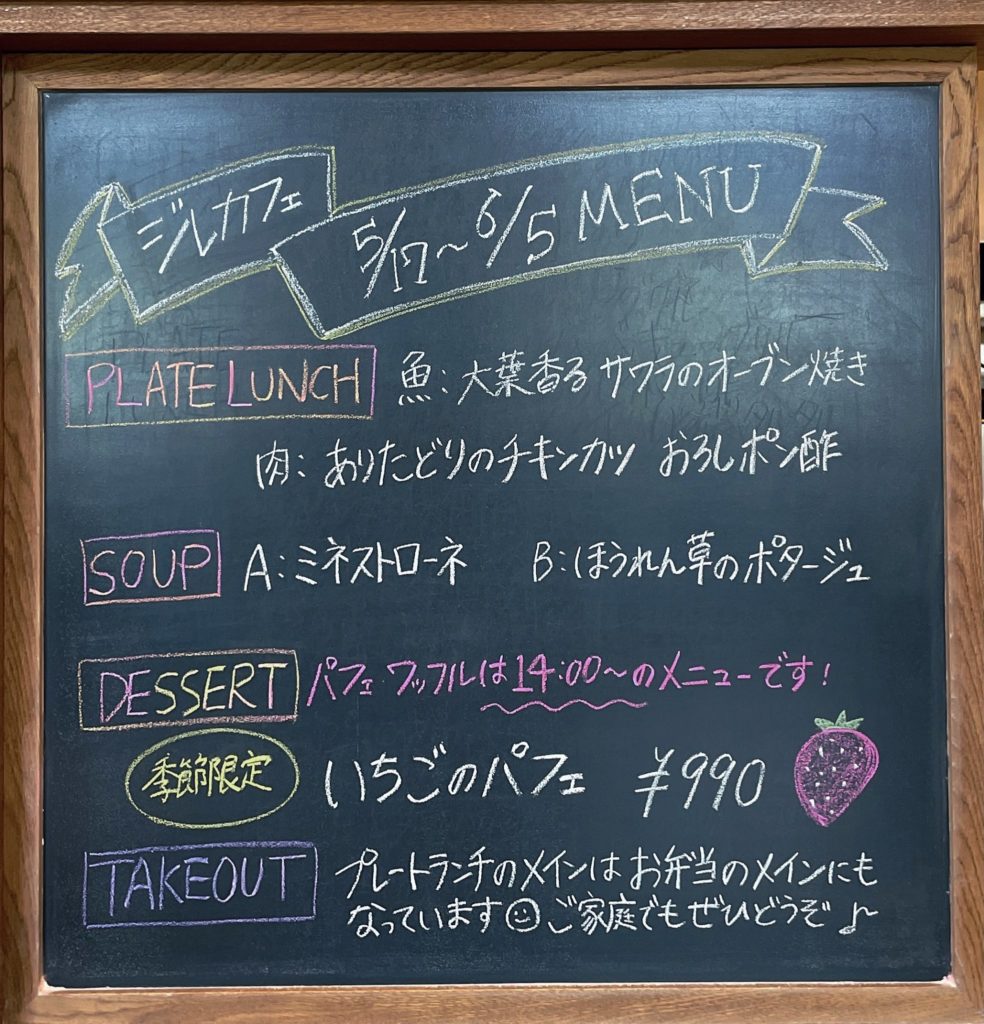 ジルカフェ 5/17〜6/5 MENU
PLATE LUNCH 魚:大葉香る サワラのオーブン焼き
肉:ありたどりのチキンカツ おろしポン酢
SOUP A:ミネストローネ B:ほうれん草のポタージュ
DESSERT パフェ ワッフルは14:00〜のメニューです!
季節限定 いちごのパフェ ¥990
TAKEOUT プレートランチのメインはお弁当のメインにも
なっています☺ご家庭でもぜひどうぞ♪